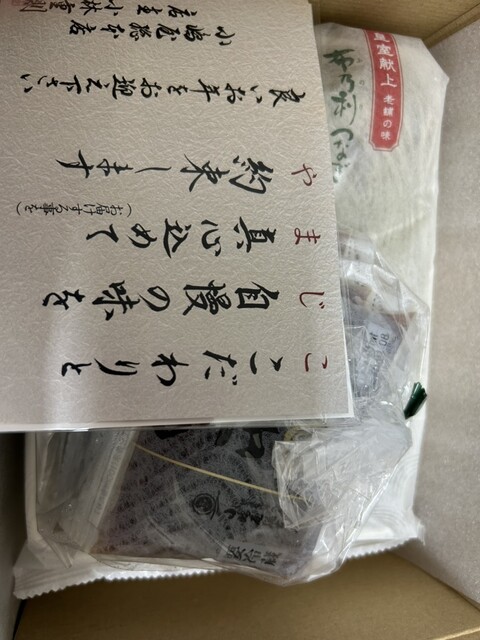 こ こだわりと
じ 自慢の味を
ま 真心込めて
（お届けする事を）
や 約束します
良いお年をお迎え下さい
小嶋屋総本店
店主 小林重
皇室献上
老舗の味
布乃利 つなぎ